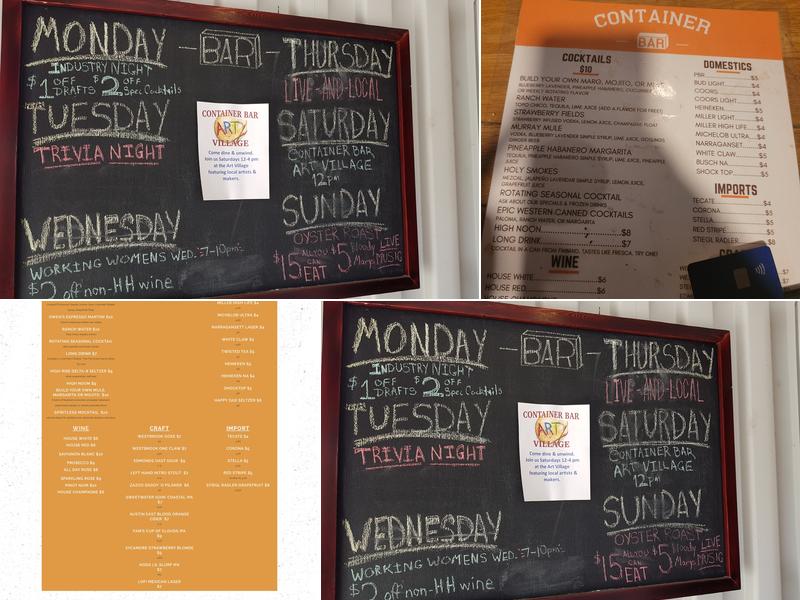 MONDAY
INDUSTRY NIGHT
$1 OFF DRAFTS $2 OFF Spec Cocktails
TUESDAY
TRIVIA NIGHT
WEDNESDAY
WORKING WOMENS WED. 7-10pm
$2 off non-HH wine
BAR
CONTAINER BAR
ART
VILLAGE
Come dine & unwind.
Join us Saturdays 12-4 pm
at the Art Village
featuring local artists &
makers.
THURSDAY
LIVE-AND-LOCAL
SATURDAY
CONTAINER BAR
ART VILLAGE
12pm
SUNDAY
OYSTER ROAST
$15 ALL YOU CAN EAT $5 Bloody Marys LIVE MUSIC
CONTAINER
BAR
COCKTAILS
$10
BUILD YOUR OWN MARG, MOJITO, OR MULE
OR WEEKLY ROTATING FLAVOR
RANCH WATER
TOPO CHICO, TEQUILA, LIME JUICE (ADD A FLAVOR FOR FREE!)
STRAWBERRY FIELDS
STRAWBERRY INFUSED VODKA, LEMON JUICE, CHAMPAGNE FLOAT
MURRAY MULE
VODKA, BLUEBERRY LAVENDER SIMPLE SYRUP, LIME JUICE,
GINGER BEER
PINEAPPLE HABANERO MARGARITA
TEQUILA, PINEAPPLE HABANERO SIMPLE SYRUP, LIME JUICE, PINEAPPLE
JUICE
HOLY SMOKES
MEZCAL, JALAPEÑO LAVENDAR SIMPLE SYRUP, LEMON JUICE,
GRAPEFRUIT JUICE
ROTATING SEASONAL COCKTAIL
ASK ABOUT OUR SPECIALS & FROZEN DRINKS
EPIC WESTERN CANNED COCKTAILS
PALOMA, RANCH WATER, OR MARGARITA
HIGH NOON $8
LONG DRINK $7
COCKTAIL IN A CAN FROM FINLAND. TASTES LIKE FRESCA, TRY ONE!
WINE
HOUSE WHITE $6
HOUSE RED $6
DOMESTICS
PBR $3
BUD LIGHT $4
COORS $4
COORS LIGHT $4
HEINEKEN $5
MILLER LIGHT $4
MILLER HIGH LIFE $4
MICHELOB ULTRA $4
NARRAGANSET $4
WHITE CLAW $5
BUSCH NA $4
SHOCK TOP $5
IMPORTS
TECATE $4
CORONA $5
STELLA $5
RED STRIPE $5
STIEGL RADLER $8
OWEN'S ESPRESSO MARTINI $10
RANCH WATER $10
ROTATING SEASONAL COCKTAIL
LONG DRINK $7
HIGH RISE DELTA-9 SELTZER $8
HIGH NOON $8
BUILD YOUR OWN MULE,
MARGARITA OR MOJITO $10
SPIRITLESS MOCKTAIL $10
MILLER HIGH LIFE $4
MICHELOB ULTRA $4
NARRAGANSETT LAGER $4
WHITE CLAW $5
TWISTED TEA $5
HEINEKEN $5
HEINEKEN NA $4
SHOCKTOP $5
HAPPY DAD SELTZER $6
WINE
HOUSE WHITE $8
HOUSE RED $8
SAUVIGNON BLANC $10
PROSECCO $9
ALL DAY ROSE $8
SPARKLING ROSE $9
PINOT NOIR $10
HOUSE CHAMPAGNE $8
CRAFT
WESTBROOK GOSE $7
WESTBROOK ONE CLAW $7
EDMONDS OAST SOUR $9
LEFT HAND NITRO STOUT $7
SWEETWATER GUAVA COASTAL IPA
AUSTIN EAST BLOOD ORANGE
CIDER $7
SYCAMORE STRAWBERRY BLONDE
LOFI MEXICAN LAGER
IMPORT
TECATE $4
CORONA $5
STELLA $5
RED STRIPE $5
STIEGL RADLER GRAPEFRUIT $8
MONDAY
INDUSTRY NIGHT
$1 OFF DRAFTS $2 OFF Spec Cocktails
TUESDAY
TRIVIA NIGHT
WEDNESDAY
WORKING WOMENS WED. 7-10pm
$2 off non-HH wine
BAR
CONTAINER BAR
ART
VILLAGE
Come dine & unwind.
Join us Saturdays 12-4 pm
at the Art Village
featuring local artists &
makers.
THURSDAY
LIVE-AND-LOCAL
SATURDAY
CONTAINER BAR
ART VILLAGE
12pm
SUNDAY
OYSTER ROAST
$15 ALL YOU CAN EAT $5 Bloody Marys LIVE MUSIC